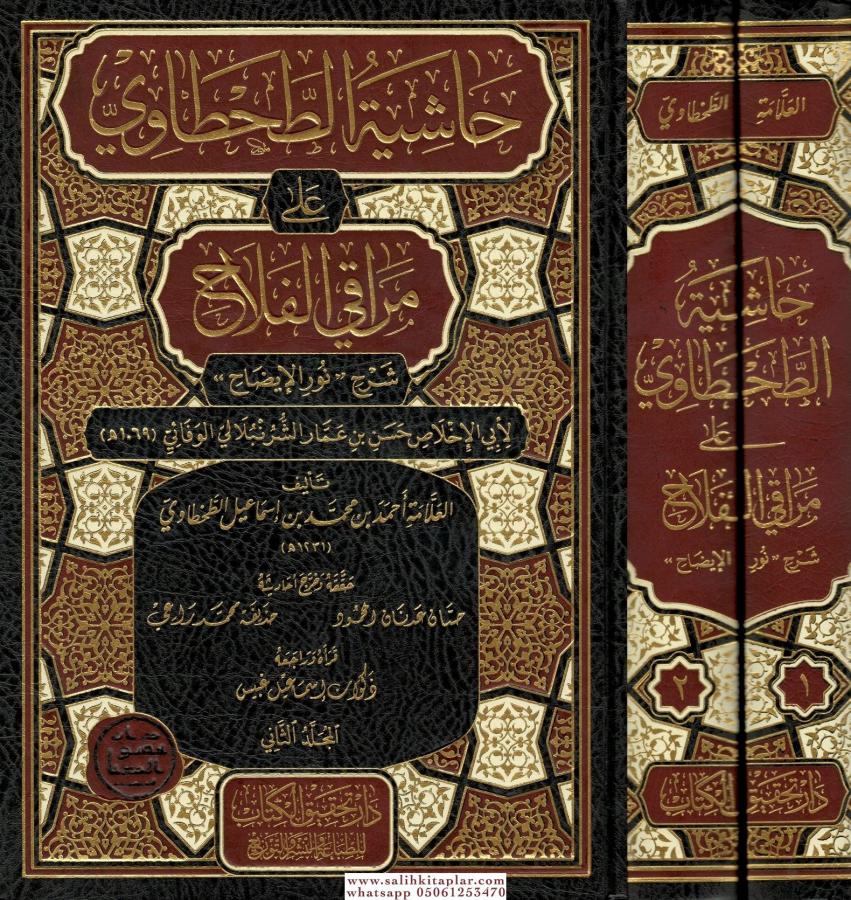 حَاشِيَةُ الطَّحْطَاوِيِّ
عَلَى
مَرَاقِي الفَلَاحِ
شَرْحِ «نُورِ الإِيضَاحِ»
لِأَبِي الإِخْلَاصِ حَسَنِ بْنِ عَمَّارٍ الشُّرُنْبُلَالِيِّ الوَفَائِيِّ (١٠٦٩هـ)
تَأْلِيفُ
العَلَّامَةِ أَحْمَدَ بْنِ مُحَمَّدِ بْنِ إِسْمَاعِيلَ الطَّحْطَاوِيِّ
(١٢٣١هـ)
حَقَّقَهُ وَخَرَّجَ أَحَادِيثَهُ
حذيفة محمد
قَرَأَهُ وَرَاجَعَهُ
إسماعيل
المُجَلَّدُ الثَّانِي
دار تحقيق الكتاب
للطباعة والنشر والتوزيع
العَلَّامَةِ الطَّحْطَاوِيِّ
حَاشِيَةُ
الطَّحْطَاوِيِّ
عَلَى
مَرَاقِي الفَلَاحِ
شَرْحِ «نُورِ الإِيضَاحِ»
١ ٢
دار تحقيق الكتاب
www.salihkitaplar.com
whatsapp 05061253470